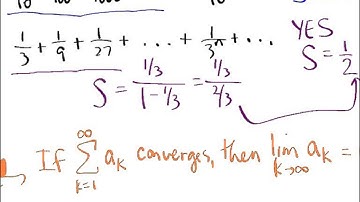 1/3 + 1/9 + 1/27 + ... + 1/3^n + ...
YES
S = 1/2
S = (1/3)/(1 - 1/3) = (1/3)/(2/3)
If ∑_{k=1}^{∞} a_k converges, then lim_{k→∞} a_k =